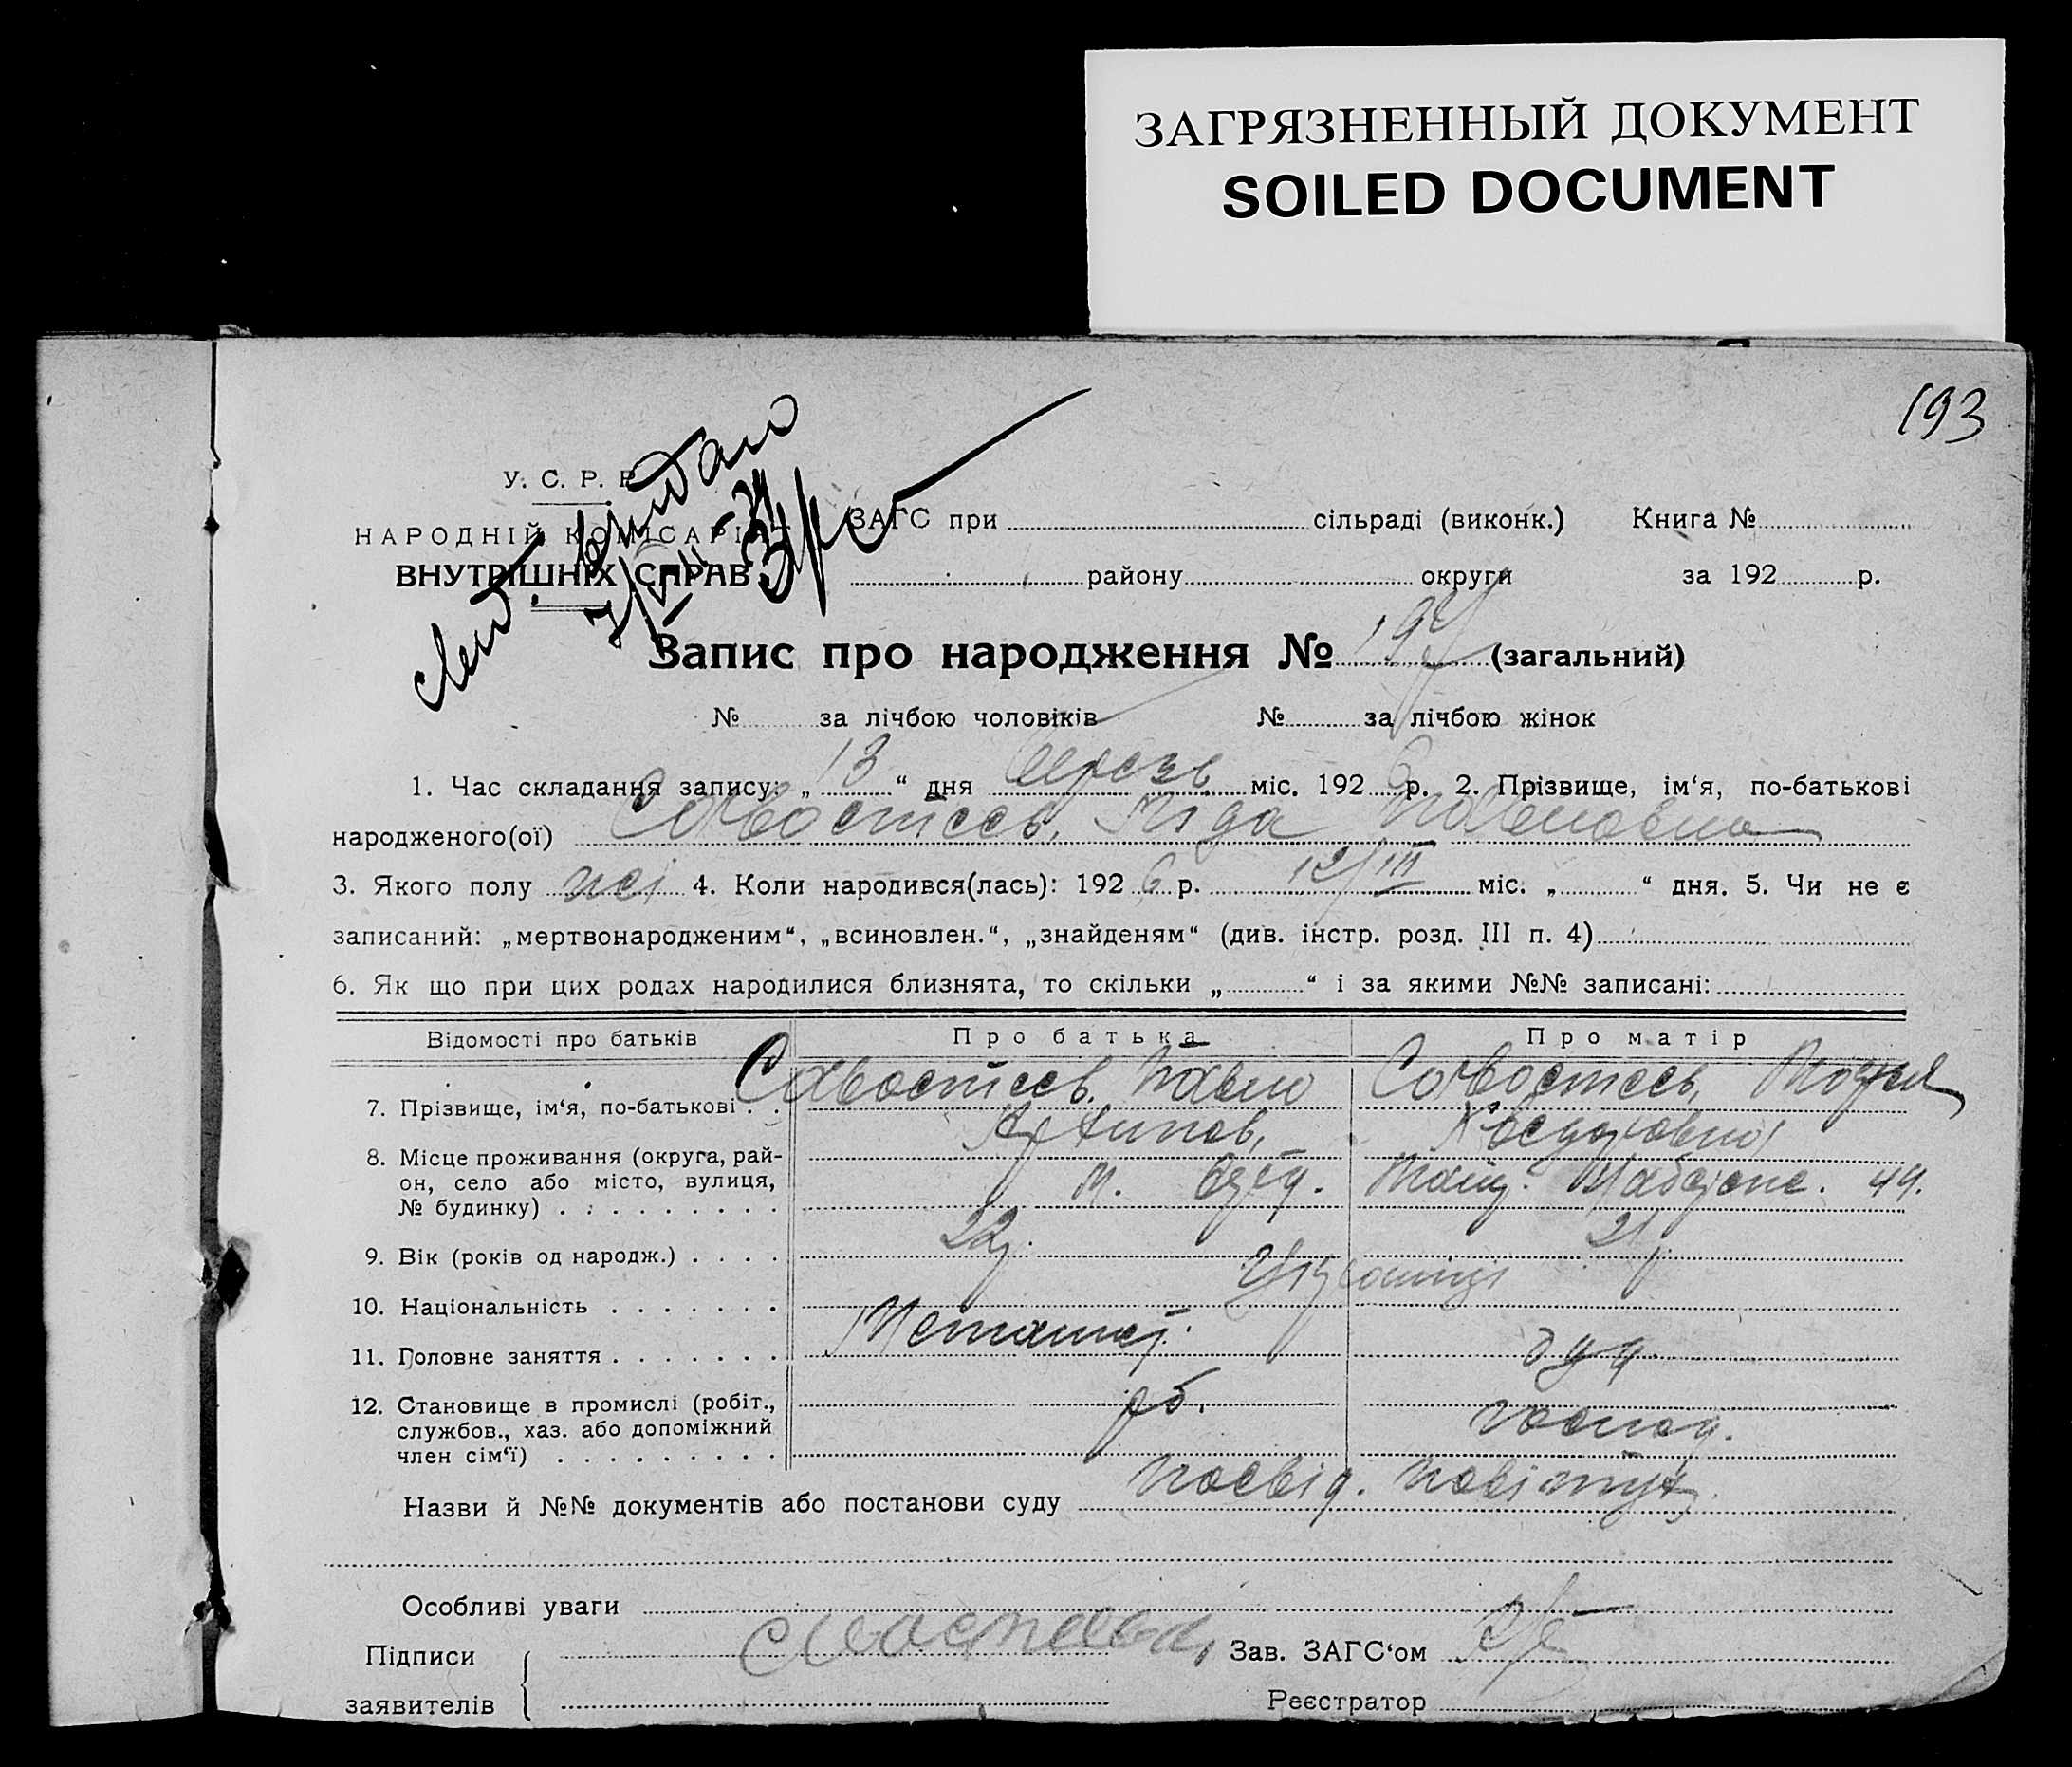 ЗАГРЯЗНЕННЫЙ ДОКУМЕНТ
SOILED DOCUMENT
193
У. С. Р. Р.
НАРОДНІЙ КОМІСАРІЯТ
ВНУТРІШНІХ СПРАВ
видано
ЗАГС при сільраді (виконк.) Книга №
району округи за 192 р.
Запис про народження № (загальний)
№ за лічбою чоловіків № за лічбою жінок
1. Час складання запису: „ 13 “ дня міс. 192 6 р. 2. Прізвище, ім‘я, по-батькові
народженого(ої) Савостєєв,
3. Якого полу 4. Коли народився(лась): 192 6 р. 12/III міс. „ “ дня. 5. Чи не є
записаний: „мертвонародженим“, „всиновлен.“, „знайденям“ (див. інстр. розд. III п. 4)
6. Як що при цих родах народилися близнята, то скільки „ “ і за якими №№ записані:
Відомості про батьків Про батька Про матір
7. Прізвище, ім‘я, по-батькові . . Савостєєв. Павло Савостєєв,
8. Місце проживання (округа, рай-
он, село або місто, вулиця, 49.
№ будинку) . . . . . . . . .
9. Вік (років од народж.) . . . . 22 21
10. Національність . . . . . . .
11. Головне заняття . . . . . . .
12. Становище в промислі (робіт., рб.
службов., хаз. або допоміжний господ.
член сім‘ї) . . . . . . . . .
Назви й №№ документів або постанови суду посвід.
Особливі уваги
Підписи Зав. ЗАГС‘ом
заявителів Реєстратор